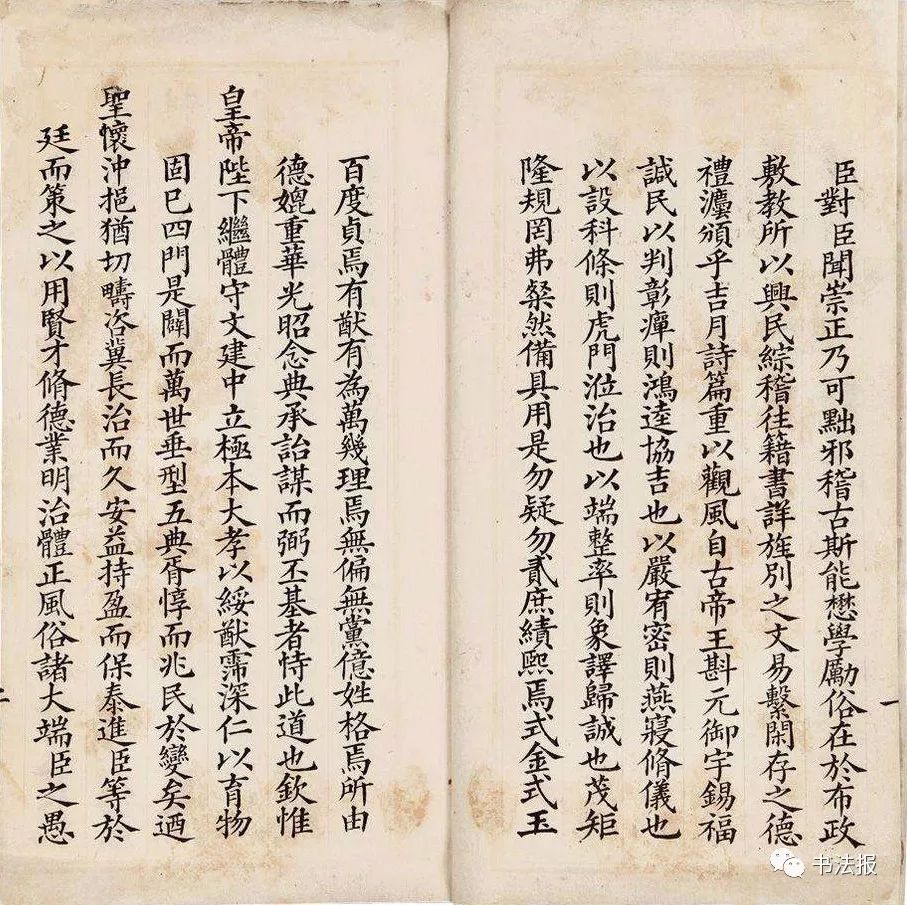 臣對臣聞崇正乃可黜邪稽古斯能懋學勵俗在於布政
敷教所以興民綜稽往籍書詳旌別之文易繫閑存之德
禮灋頒乎吉月詩篇重以觀風自古帝王斟元御宇錫福
諴民以判彰癉則鴻逵協吉也以嚴宥密則燕寢脩儀也
以設科條則虎門涖治也以端整率則象譯歸誠也茂矩
隆規罔弗粲然備具用是勿疑勿貳庶績熙焉式金式玉
百度貞焉有猷有為萬幾理焉無偏無黨億姓格焉所由
德媲重華光昭念典承詒謀而弼丕基者恃此道也欽惟
皇帝陛下繼體守文建中立極本大孝以綏猷霈深仁以育物
固已四門是闢而萬世垂型五典胥惇而兆民於變矣迺
聖懷沖挹猶切疇咨冀長治而久安益持盈而保泰進臣等於
廷而策之以用賢才脩德業明治體正風俗諸大端臣之愚
一
二
书法报